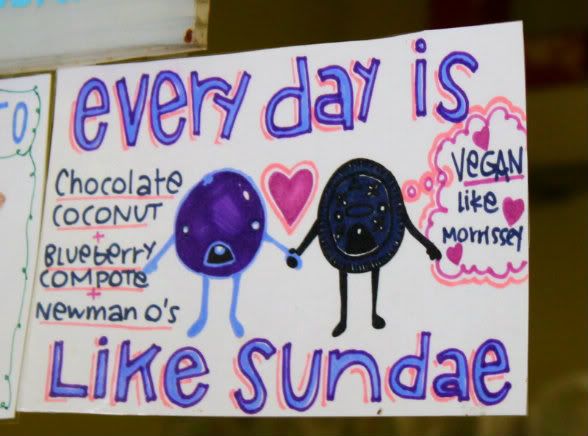 every day is
Chocolate
COCONUT
+
BLUEBERRY
COMPOTE
+
NEWMAN O'S
VEGAN
like
MORRISSEY
Like Sundae
TO